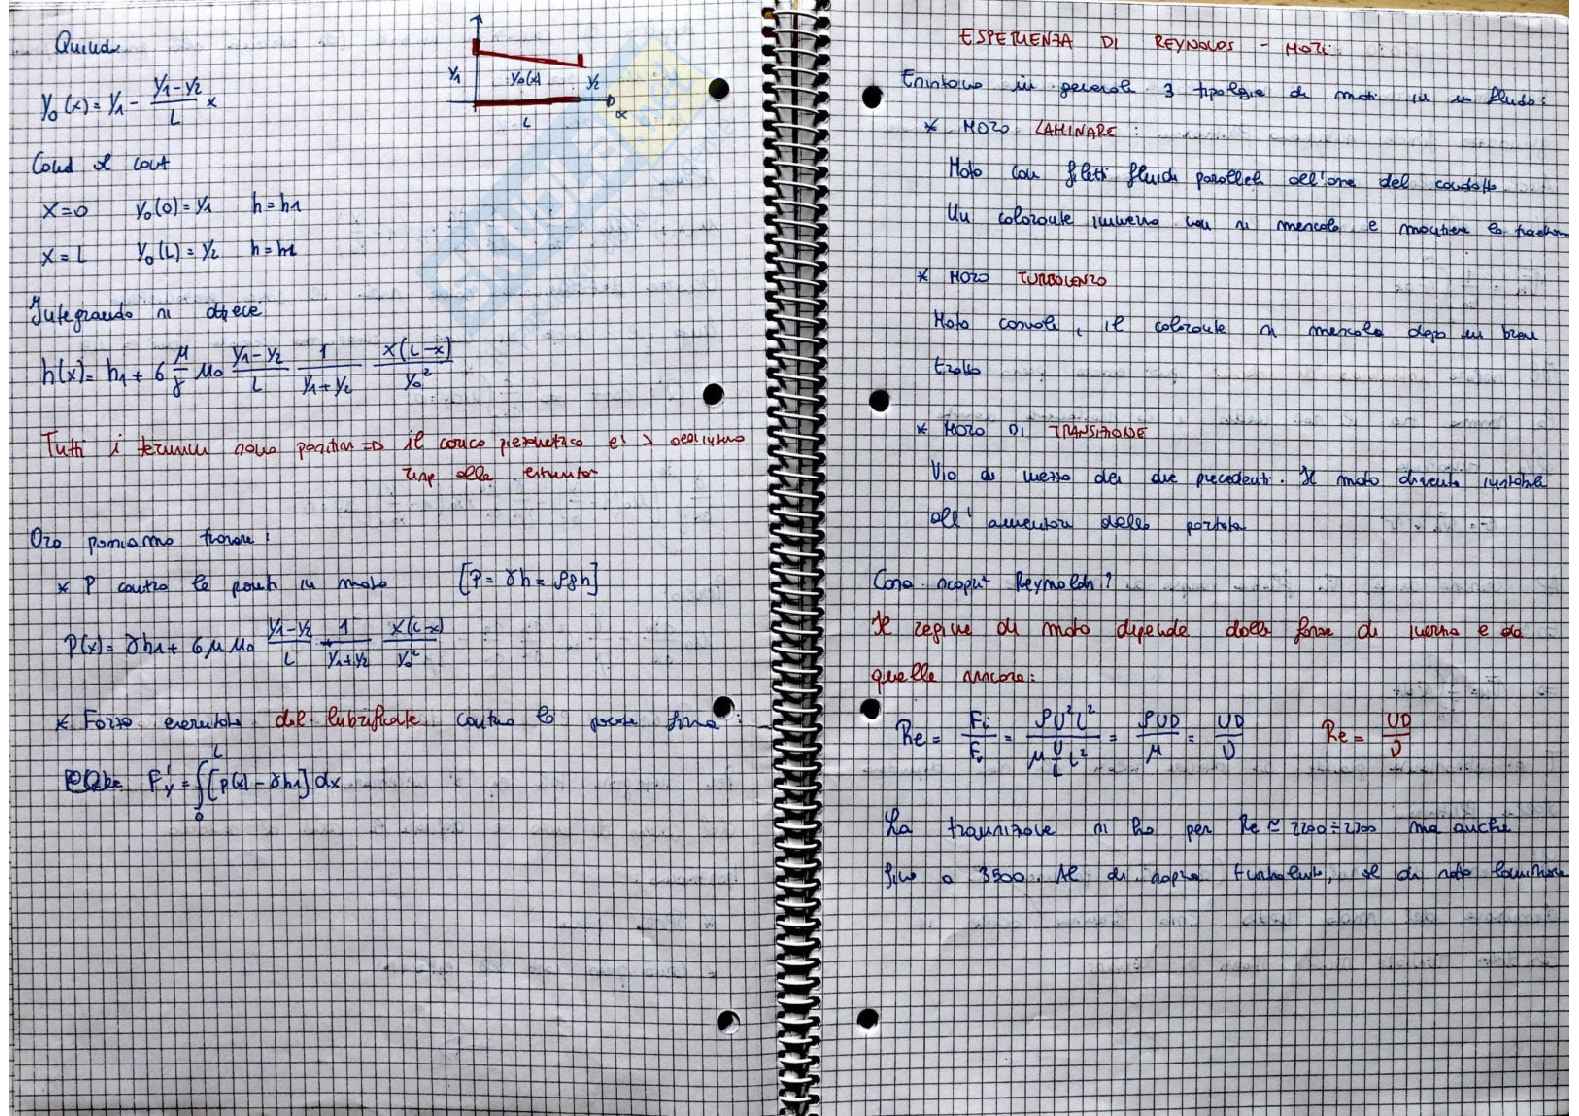 Quindi
y₀(x) = y₁ - (y₁-y₂)/L x
y₁ y₀(x) y₂
L x
Cond al cont
x=0 y₀(0)=y₁ h=h₁
x=L y₀(L)=y₂ h=h₁
Integrando si ottiene
h(x)= h₁ + 6 μ/γ u₀ (y₁-y₂)/L 1/(y₁+y₂) x(L-x)/y₀²
Tutti i termini sono positivi => il carico piezometrico è > all'interno
risp alle estremità
Ora possiamo trovare:
* P contro le pareti in moto [P = γh = ρgh]
P(x)= γh₁ + 6 μ u₀ (y₁-y₂)/L 1/(y₁+y₂) x(L-x)/y₀²
* Forza esercitata dal lubrificante contro la parete fissa:
F'y = ∫₀ᴸ [p(x) - γh₁] dx
ESPERIENZA DI REYNOLDS - MOTI
Esistono in generale 3 tipologie di moti in un fluido:
* MOTO LAMINARE:
Moto con filetti fluidi paralleli all'asse del condotto
Un colorante immerso non si mescola e mantiene la
* MOTO TURBOLENTO
Moto , il colorante si mescola dopo un breve
tratto
* MOTO DI TRANSIZIONE
Via di mezzo dei due precedenti. Il moto diventa instabile
all'aumentare della portata
Cosa scoprì Reynolds?
Il regime di moto dipende dalle forze di inerzia e da
quelle viscose:
Re = Fi/Fv = ρU²L²/(μ U/L L²) = ρUD/μ = UD/ν Re = UD/ν
La transizione si ha per Re ≃ 2200÷2300 ma anche
fino a 3500. Al di sopra turbolento, al di sotto laminare